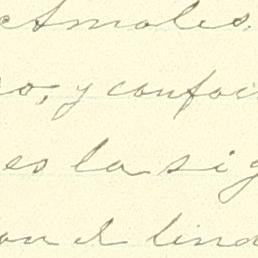 ctmoles.
ro, y confor
es la sig
on el lind